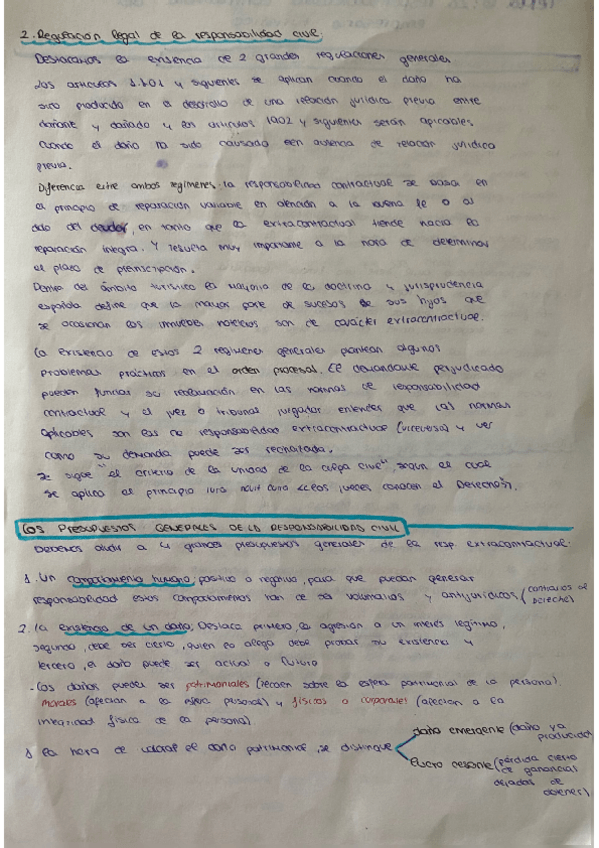 2. Regulación legal de la responsabilidad civil:
Destacamos la existencia de 2 grandes regulaciones generales
Los artículos 1.101 y siguientes se aplican cuando el daño ha
sido producido en el desarrollo de una relación jurídica previa entre
dañante y dañado y los artículos 1902 y siguientes serán aplicables
cuando el daño ha sido causado en ausencia de relación jurídica
previa.
Diferencia entre ambos regímenes: la responsabilidad contractual se basa en
el principio de reparación variable en atención a la buena fe o al
dolo del deudor, en tanto que la extracontractual tiende hacia la
reparación íntegra. Y resulta muy importante a la hora de determinar
el plazo de preinscripción.
Dentro del ámbito turístico la mayoría de la doctrina y jurisprudencia
española define que la mayor parte de sucesos de sus hijos que
se ocasionan los inmuebles hoteleros son de carácter extracontractual.
La existencia de estos 2 regímenes generales plantean algunos
problemas prácticos en el orden procesal. El demandante perjudicado
pueden fundar su reclamación en las normas de responsabilidad
contractual y el juez o tribunal juzgador entender que las normas
aplicables son las de responsabilidad extracontractual (viceversa) y ver
como su demanda puede ser rechazada.
Se sigue "el criterio de la unidad de la culpa civil", según el cual
se aplica el principio iura novit curia (los jueces conocen el Derecho).
LOS PRESUPUESTOS GENERALES DE LA RESPONSABILIDAD CIVIL
Debemos aludir a 4 grandes presupuestos generales de la resp. extracontractual.
1. Un comportamiento humano, positivo o negativo, para que puedan generar
responsabilidad estos comportamientos han de ser voluntarios y antijurídicos (contrarios al
derecho)
2. La existencia de un daño; Destaca primero la agresión a un interés legítimo,
segundo, debe ser cierto, quien lo alega debe probar su existencia y
tercero, el daño puede ser actual o futuro
- Los daños pueden ser patrimoniales (recaen sobre la esfera patrimonial de la persona),
morales (afectan a la esfera personal) y físicos o corporales (afectan a la
integridad física de la persona).
A la hora de valorar el daño patrimonial, se distingue
daño emergente (daño ya
producido)
lucro cesante (pérdida cierta
de ganancias
dejadas de
obtener)